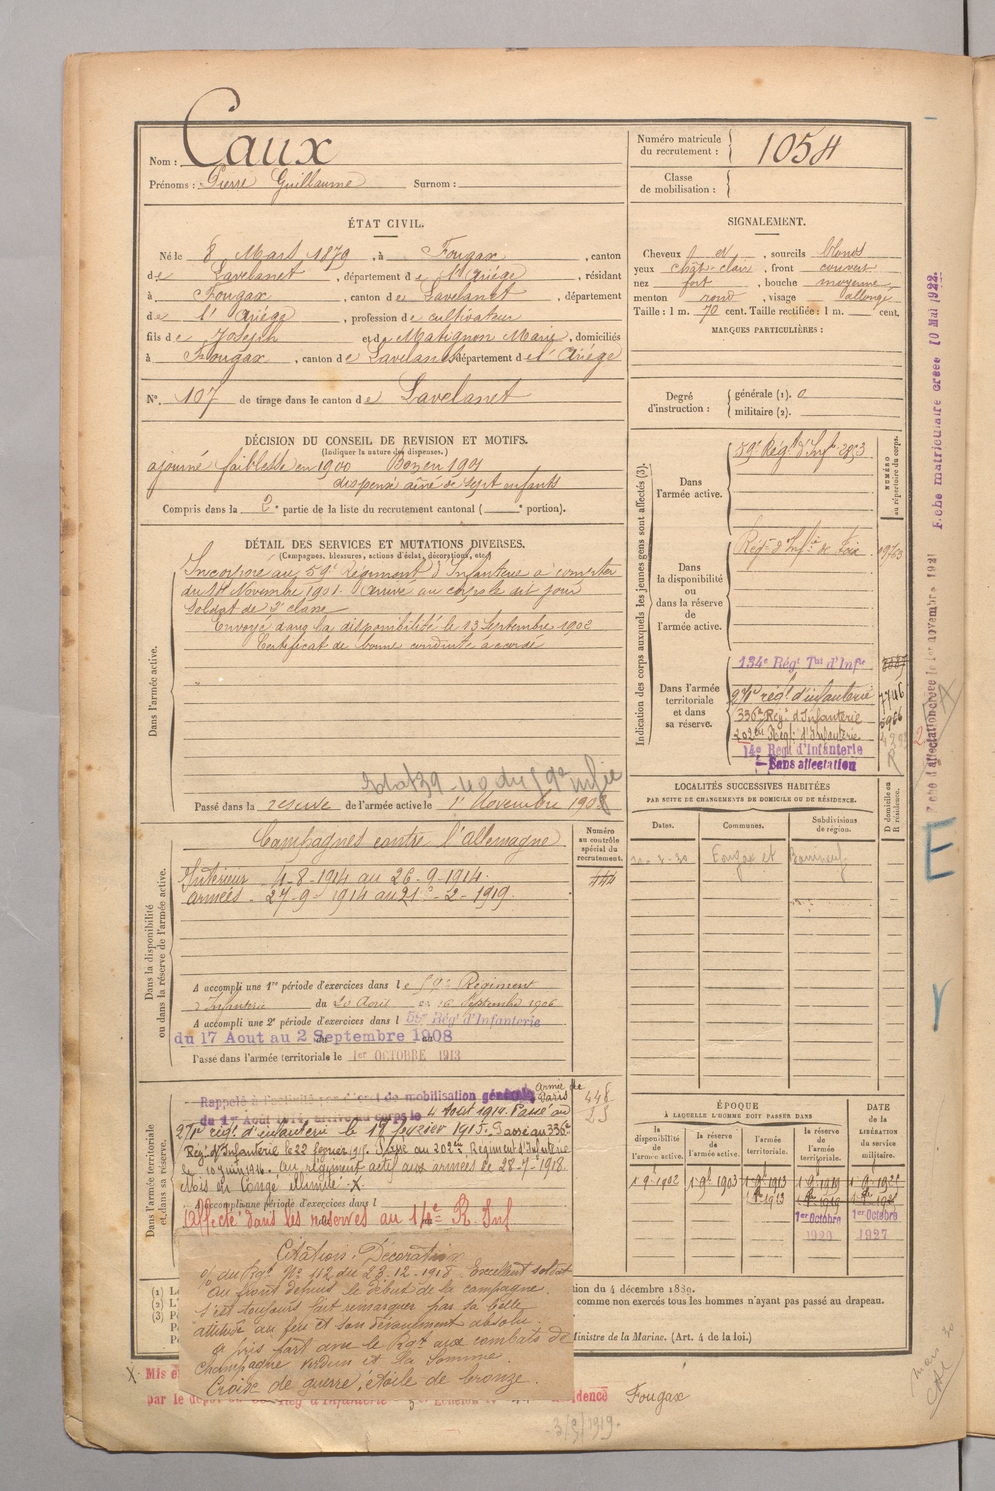 Nom : Caux
Prénoms : Pierre Guillaume Surnom :
Numéro matricule du recrutement : 1054
Classe de mobilisation :
ÉTAT CIVIL.
Né le 8 Mars 1879, à Fougax, canton
de Lavelanet, département de l'Ariége, résidant
à Fougax, canton de Lavelanet, département
de l'Ariége, profession de cultivateur
fils de Joseph et de Matignon Marie, domiciliés
à Fougax, canton de Lavelanet département de l'Ariége
N° 107 de tirage dans le canton de Lavelanet
SIGNALEMENT.
Cheveux et, sourcils blonds
yeux chât-clair, front couvert
nez fort, bouche moyenne,
menton rond, visage allongé
Taille : 1 m. 70 cent. Taille rectifiée : 1 m. cent.
MARQUES PARTICULIÈRES :
Degré d'instruction : générale (1). 0
militaire (2).
DÉCISION DU CONSEIL DE REVISION ET MOTIFS.
(Indiquer la nature des dispenses.)
ajourné faiblesse en 1900 Bon en 1901
dispensé aîné de sept enfants
Compris dans la 2e partie de la liste du recrutement cantonal ( e portion).
DÉTAIL DES SERVICES ET MUTATIONS DIVERSES.
(Campagnes, blessures, actions d'éclat, décorations, etc.)
Dans l'armée active.
Incorporé au 59e Régiment d'Infanterie à compter
du 14 Novembre 1901. Arrivé au corps le dit jour
Soldat de 2e classe
Envoyé dans la disponibilité le 13 Septembre 1902
Certificat de bonne conduite accordé
Passé dans la réserve de l'armée active le 1er Novembre 190
Indication des corps auxquels les jeunes gens sont affectés (3).
NUMÉRO au répertoire du corps.
Dans l'armée active.
59e Régt d'Inf
Dans la disponibilité ou dans la réserve de l'armée active.
Régt d'Infie de Foix
Dans l'armée territoriale et dans sa réserve.
134e Régt Tal d'Infie
271e régt d'infanterie
336e Régt d'Infanterie
202e Régt d'Infanterie
14e Régt d'Infanterie
Sans affectation
Dans la disponibilité ou dans la réserve de l'armée active.
Campagnes contre l'allemagne
Intérieur 4-8-1914 au 26-9-1914.
armées - 27-9-1914 au 21-2-1919.
Numéro au contrôle spécial du recrutement.
A accompli une 1re période d'exercices dans le 59e Régiment
d'Infanterie du 20 Août au 16 Septembre 1906
A accompli une 2e période d'exercices dans l 59e Régt d'Infanterie
du 17 Aout au 2 Septembre 1908
Passé dans l'armée territoriale le 1er OCTOBRE 1913
LOCALITÉS SUCCESSIVES HABITÉES
PAR SUITE DE CHANGEMENTS DE DOMICILE OU DE RÉSIDENCE.
Dates. Communes. Subdivisions de région. D domicile ou R résidence.
Fougax et
Dans l'armée territoriale et dans sa réserve.
Rappelé à l'activité par décret de mobilisation générale Armée de Paris
du 1er Août 1914, arrivé au corps le 4 Aout 1914. Passé au
271e régt d'infanterie le 17 février 1915. Passé au 336e
Régt d'Infanterie le 22 février 1915. Passé au 202e Régiment d'Infanterie
le 10 juin 1916. au régiment actif aux armées le 28-7-1918.
Mis en Congé illimité X.
A accompli une période d'exercices dans l
Affecté dans les réserves au 14e R. Inf
Citation, Décoration
du Régt No 112 du 23-12-1918 Excellent soldat
au front depuis le début de la campagne.
s'est toujours fait remarquer par sa belle
attitude au feu et son dévouement absolu.
a pris part avec le Regt aux combats de
Champagne Verdun et la Somme.
Croix de guerre, étoile de bronze.
ÉPOQUE
À LAQUELLE L'HOMME DOIT PASSER DANS
DATE DE LA LIBÉRATION du service militaire.
la disponibilité de l'armée active. la réserve de l'armée active. l'armée territoriale. la réserve de l'armée territoriale.
1-9-1902 1-9-1903 1-9-1913 1-9-1919
1er Octobre 1920 1er Octobre 1927
tion du 4 décembre 1889.
comme non exercés tous les hommes n'ayant pas passé au drapeau.
Ministre de la Marine. (Art. 4 de la loi.)
X. Mis e
par le dépôt
idence Fougax
3/9/1919.
Fiche matriculaire créée 10 Mai 1922.
Fiche d'affectation créée le 1er novembre
E